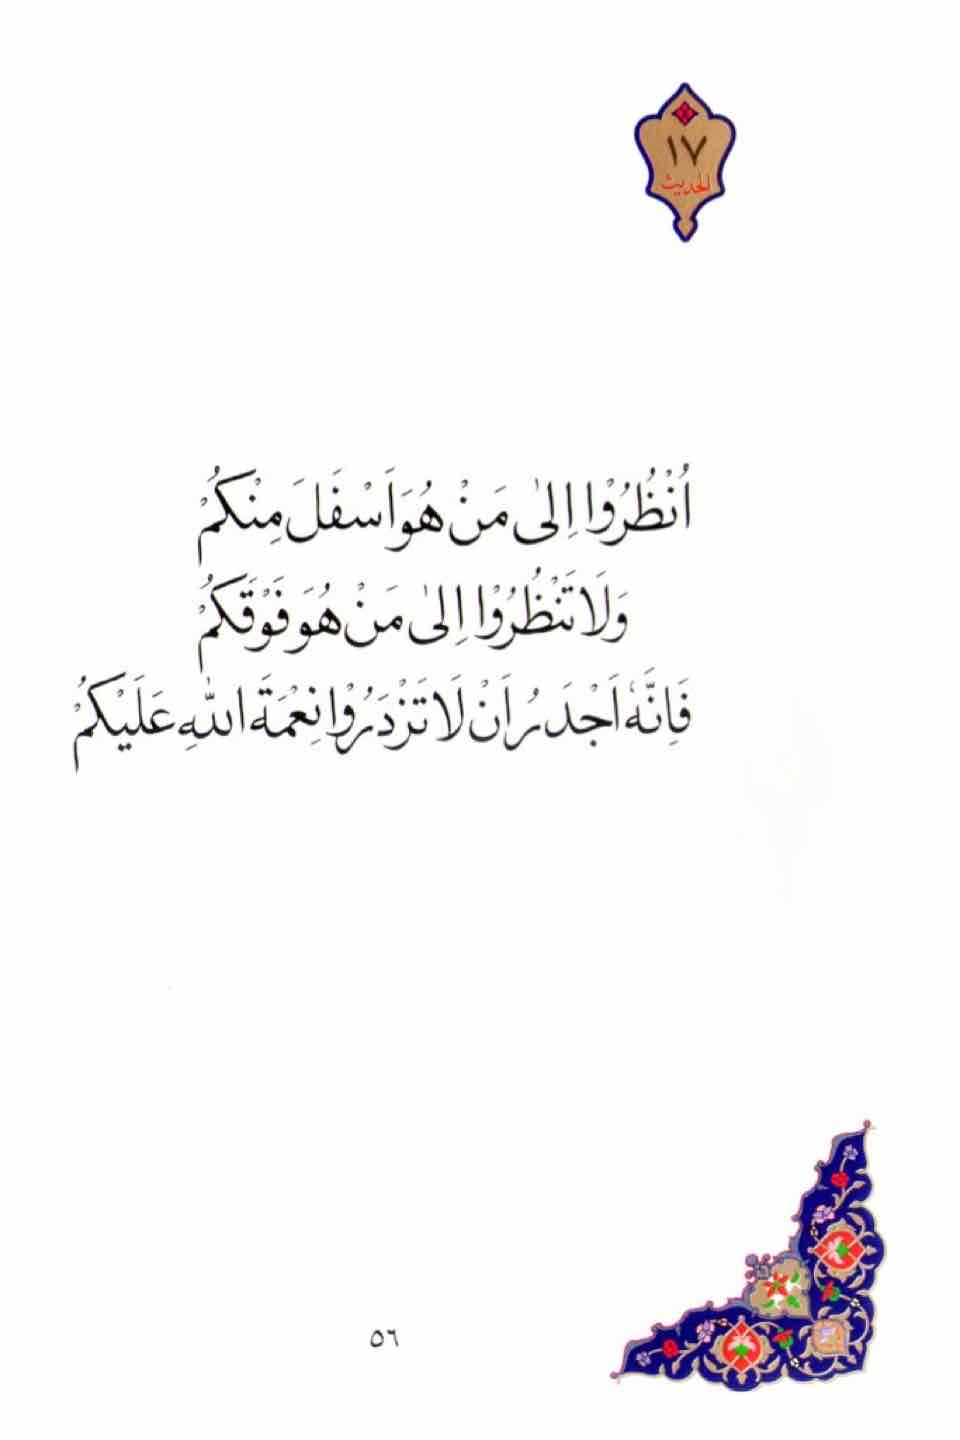 ١٧
الحديث
اُنْظُرُوْا اِلٰى مَنْ هُوَ اَسْفَلَ مِنْكُمْ
وَلَا تَنْظُرُوْا اِلٰى مَنْ هُوَ فَوْقَكُمْ
فَاِنَّهُ اَجْدَرُ اَنْ لَا تَزْدَرُوْا نِعْمَةَ اللهِ عَلَيْكُمْ
٥٦